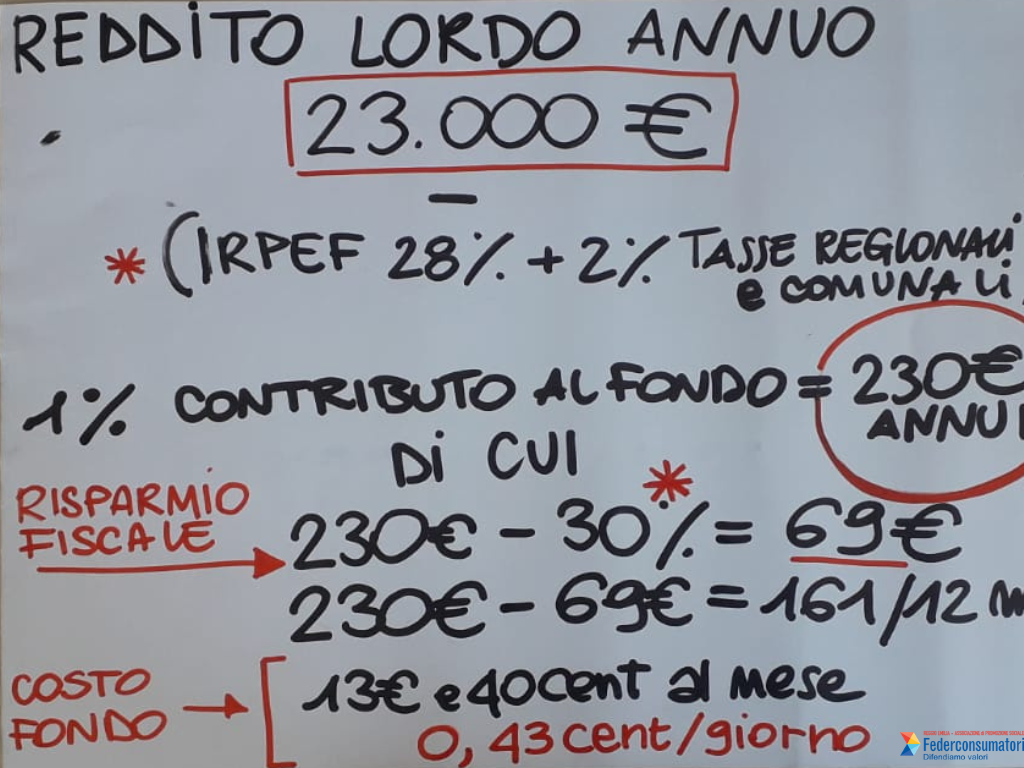 REDDITO LORDO ANNUO
23.000 €
–
* (IRPEF 28% + 2% TASSE REGIONALI
e COMUNALI)
1% CONTRIBUTO AL FONDO = 230€
ANNUI
DI CUI
*
RISPARMIO
FISCALE
230€ – 30% = 69€
230€ – 69€ = 161/12 m
COSTO
FONDO
13€ e 40 cent al mese
0,43 cent/giorno
Federconsumatori
Difendiamo valori